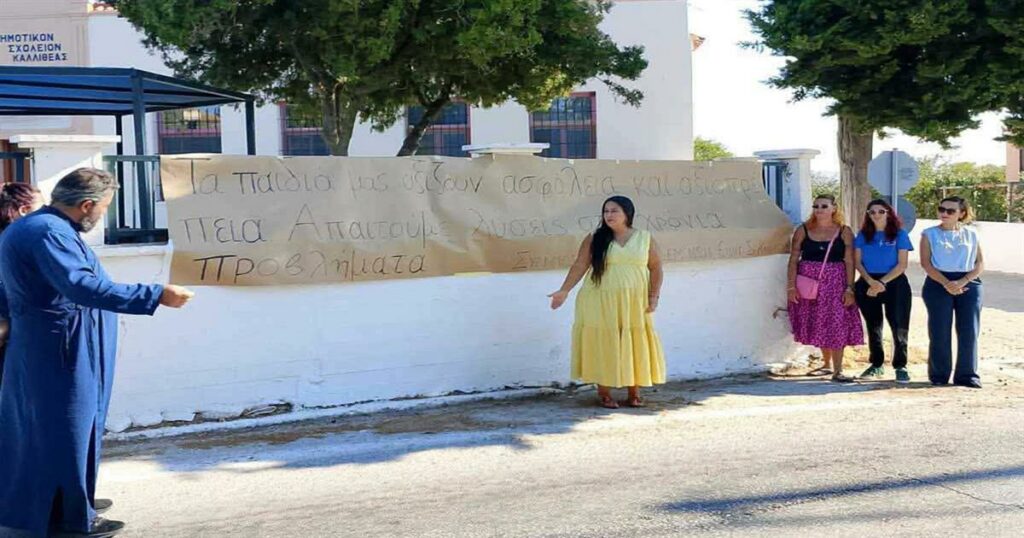 ΗΜΟΤΙΚΟΝ
ΣΧΟΛΕΙΟΝ
ΚΑΛΛΙΘΕΑΣ
Τα παιδια μας αξιζουν ασφαλεια και αξιοπρέ
πεια Απαιτούμε λύσεις στα χρόνια
προβλήματα